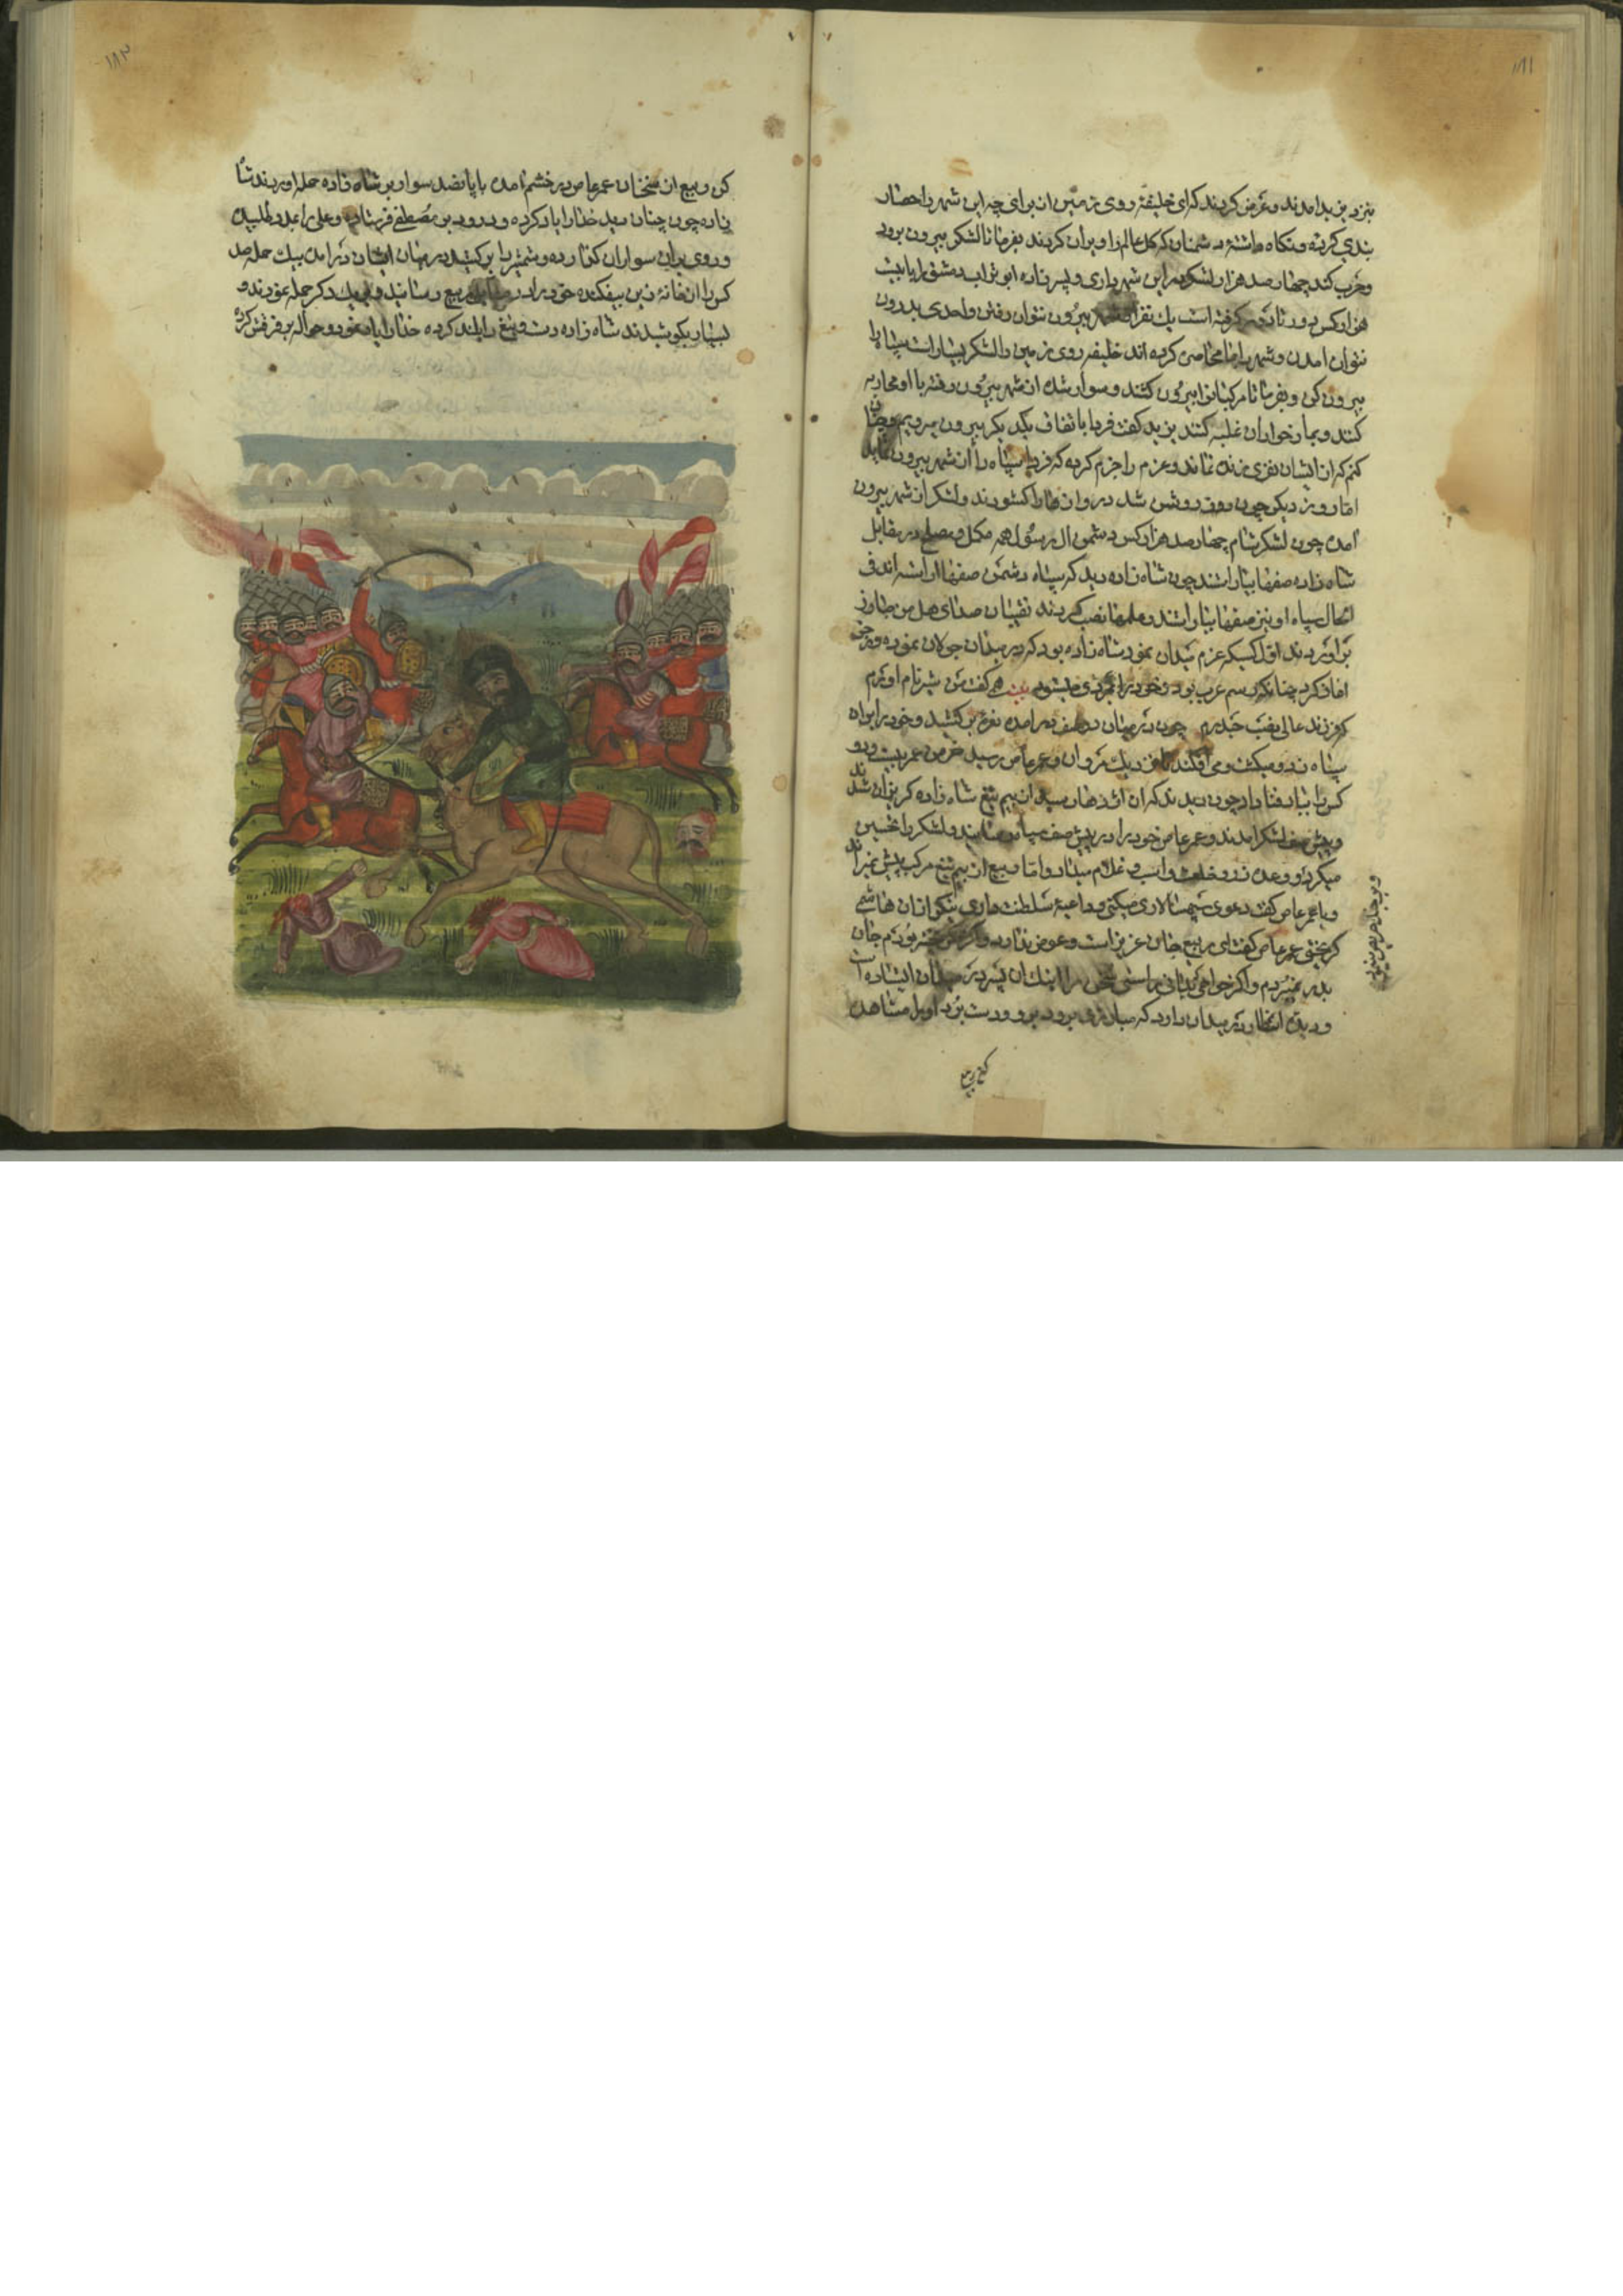 ۱۸۱
بنزد یزید امدند و عرض کردند که ای خلیفهٔ روی زمین از برای چه این شهر را حصار
بندی کرده و نگاه داشتهٔ دشمنان که کل عالم را ویران کردند بفرما تا لشکر بیرون برود
و حرب کند چهار صد هزار لشکر در این شهر داری و پسر زاده ابو تراب دمشق را با بیست
هزار کس دور تا دور گرفته است یک نفر از شهر بیرون نتوان رفتن و احدی بدرون
نتوان امدن و شهر را تمام محاصره کرده اند خلیفه روی زمین را لشکر بسیار است سپاه را
بیرون کن و بفرما تا مرکبانرا بیرون کشند و سوار شده از شهر بیرون رفته با او محاربه
کنند و بما خواران غلبه کنند یزید گفت فردا باتفاق یکدیگر بیرون میرویم و چنان
کنم که از ایشان نفری زنده نماند و عزم را جزم کرده که فردا سپاه را از شهر بیرون
اما روز دیگر چون روز روشن شد دروازه ها را کشودند و لشکر از شهر بیرون
امده چون لشکر شام چهار صد هزار کس دشمن ال رسول همه مکمل و مصلح در مقابل
شاه زاده صفها بیاراستند چون شاه زاده دید که سپاه دشمن صفها اراسته اند فی
الحال سپاه او نیز صفها بیاراستند و علمها نصب کردند نقیبان صدای هل من مبارز
براوردند اول کسیکه عزم میدان نمود شاه زاده بود که در میدان جولان نموده و رجز
اغاز کرد چنانکه رسم عرب بود و خود را بمردی میستود بیت همی گفت من شیر نام اورم
که فرزند عالی نصب حیدرم چون در میان دو صف در امده نعره بر کشید و خود را بر ان
سپاه زد و میکشت و می افکند تا نزدیک مروان و عمر عاص رسید خرمن عمر بیست و دو
کس را بباد فنا داد چون دیدند که ان اژدها رسید از بیم تیغ شاه زاده گریزان شدند
و پیش صف لشکر امدند و عمر عاص خود را در پیش صف سپاه رسانید و لشکر را تحسین
میکرد و وعده زر و خلعت و اسب و غلام میداد و اما ربیع از بیم تیغ مرکب پیش نمیراند
و با عمر عاص گفت دعوی سپهسالاری میکنی و داعیهٔ سلطنت داری بنگر از ان هاشمی
گریختی عمر عاص گفت ای ربیع جان عزیز است و عوض ندارد و اگر من گریخته بودم جان
بدر نمیبردم و اگر خواهی بدانی راستی سخن مرا اینک ان پسر در میدان ایستاده است
و دیدهٔ انتظار در میدان دارد که مبارزی برود برو و دست برد او را مشاهده
کن ربیع
۱۸۲
کن ربیع از سخنان عمر عاص در خشم امده با پانصد سوار بر شاه زاده حمله اوردند شاه
زاده چون چنان دید خدا را یاد کرده و درود بر مصطفی فرستاد و علی را بمدد طلبیده
و روی بران سواران کذارده و شمشیر را بر کشید در میان ایشان در امده بیک حمله صد
کس را از خانهٔ زین بیفکنده خود را در مقابل ربیع رسانید و بر یکدیگر حمله نمودند و
بسیار بکوشیدند شاه زاده دست و تیغ را بلند کرده خدا را یاد نمود و حواله بر فرقش کرد